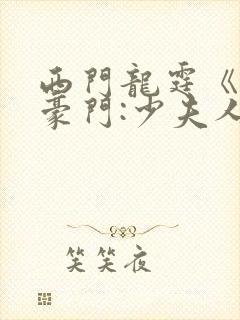 西門龍霆《
豪門:少夫人
笑笑夜